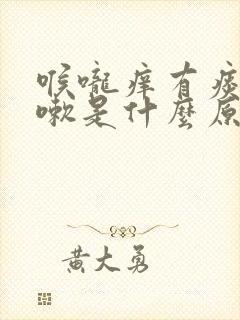 喉嚨痒有痰
嗽是什麼原
黃大勇